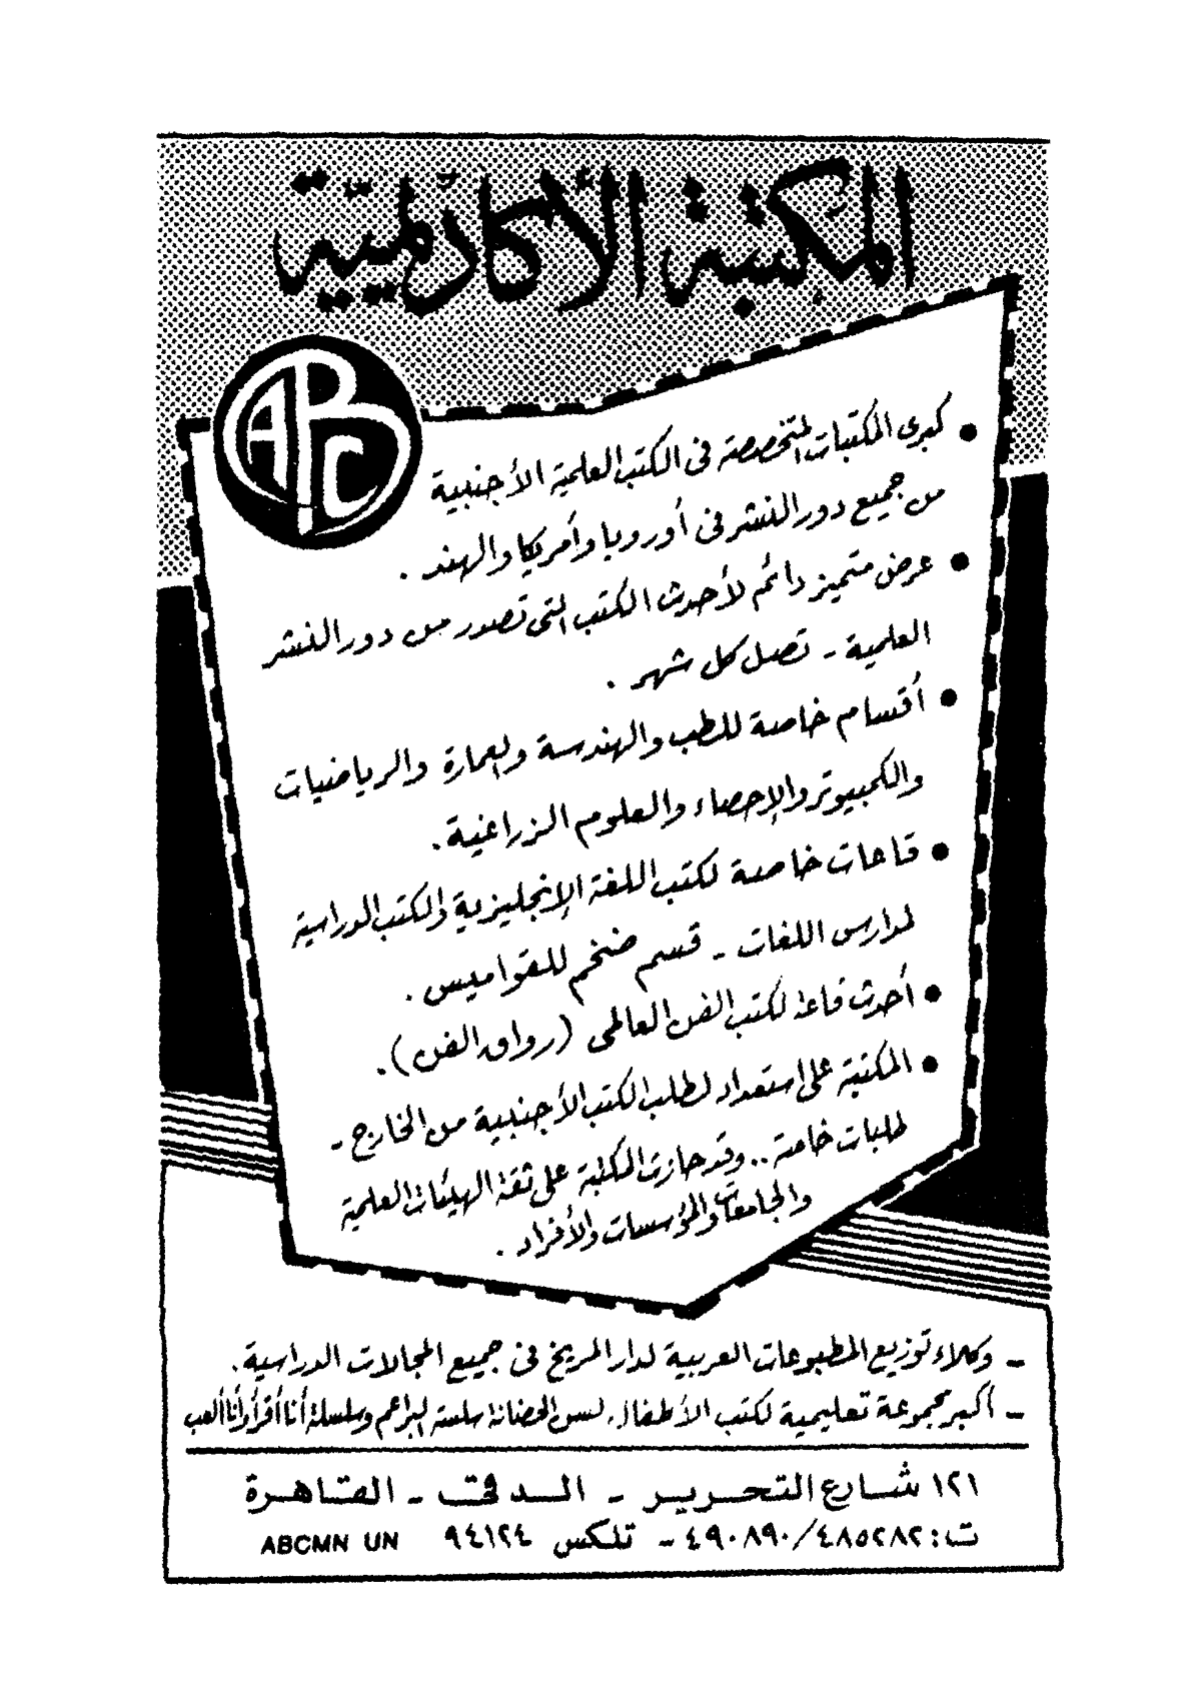 المكتبة الأكاديمية
ABC
• كبرى المكتبات المتخصصة فى الكتب العلمية الأجنبية
من جميع دور النشر فى أوروبا وأمريكا والهند .
• عرض متميز دائم لأحدث الكتب التى تصدر من دور النشر
العلمية - تصل كل شهر .
• أقسام خاصة للطب والهندسة والعمارة والرياضيات
والكمبيوتر والإحصاء والعلوم الزراعية .
• قاعات خاصة لكتب اللغة الإنجليزية والكتب الدراسية
لمدارس اللغات - قسم ضخم للقواميس .
• أحدث قاعة لكتب الفن العالمى (رواق الفن) .
• المكتبة على استعداد لطلب الكتب الأجنبية من الخارج -
طلبات خاصة .. وقد حازت المكتبة على ثقة الهيئات العلمية
والجامعات والمؤسسات والأفراد .
- وكلاء توزيع المطبوعات العربية لدار المريخ فى جميع المجالات الدراسية .
- أكبر مجموعة تعليمية لكتب الأطفال . لسن الحضانة سلسلة البراعم وسلسلة أنا أقرأ وأنا ألعب
١٢١ شارع التحرير - الدقى - القاهرة
ت : ٤٨٥٢٨٢/٤٩٠٨٩٠ - تلكس ٩٤١٢٤ ABCMN UN